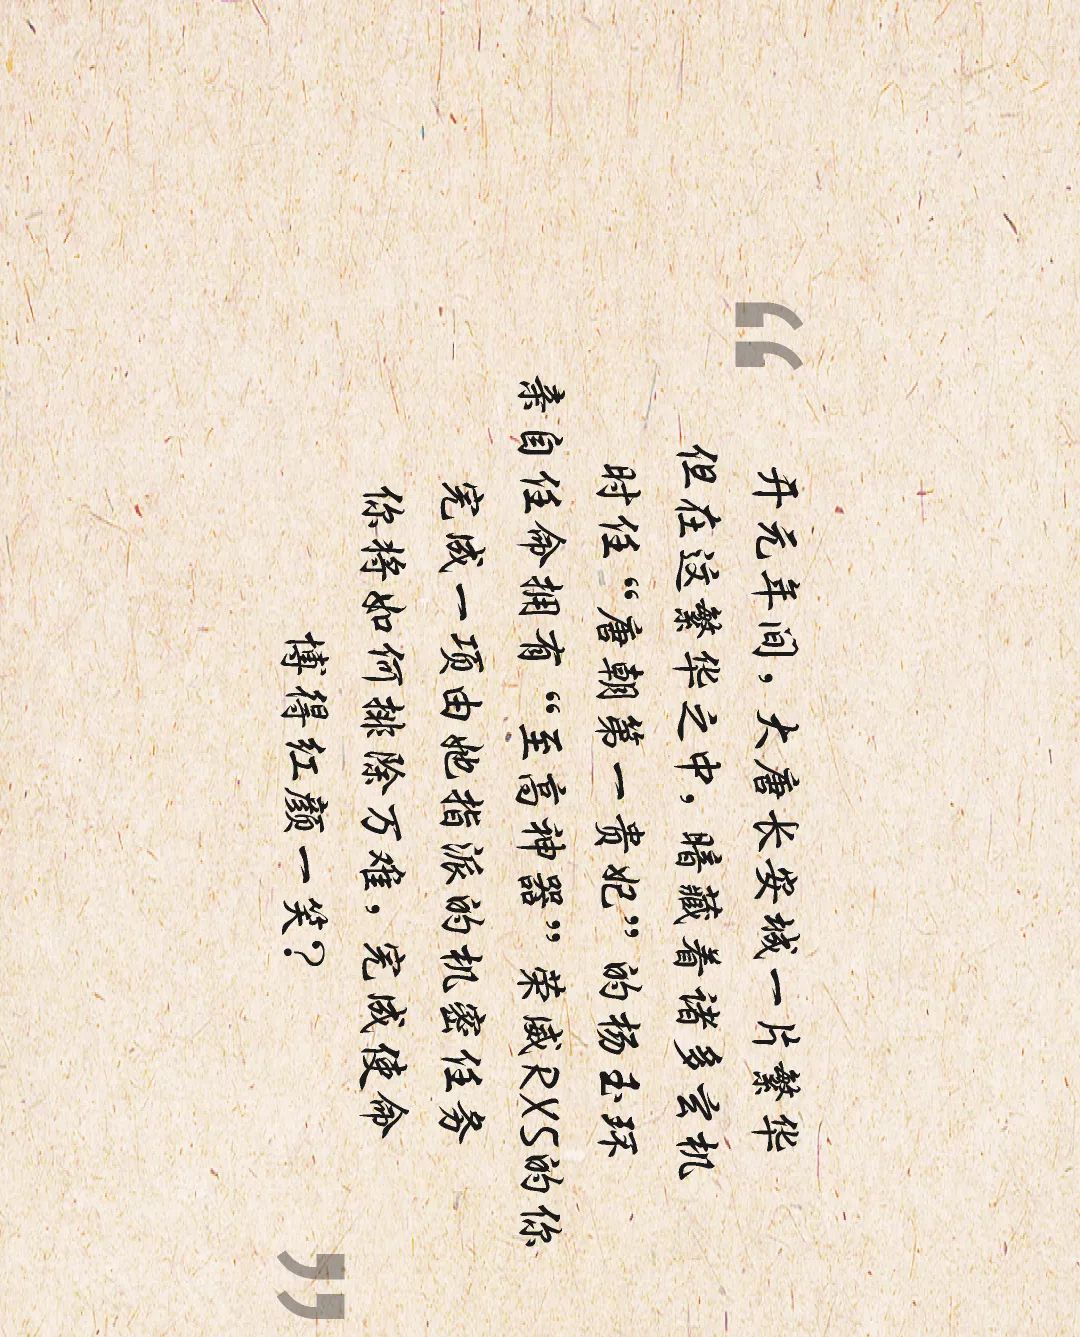 “
开元年间，大唐长安城一片繁华
但在这繁华之中，暗藏着诸多玄机
时任“唐朝第一贵妃”的杨玉环
亲自任命拥有“至高神器”荣威RX5的你
完成一项由她指派的机密任务
你将如何排除万难，完成使命
博得红颜一笑？
”